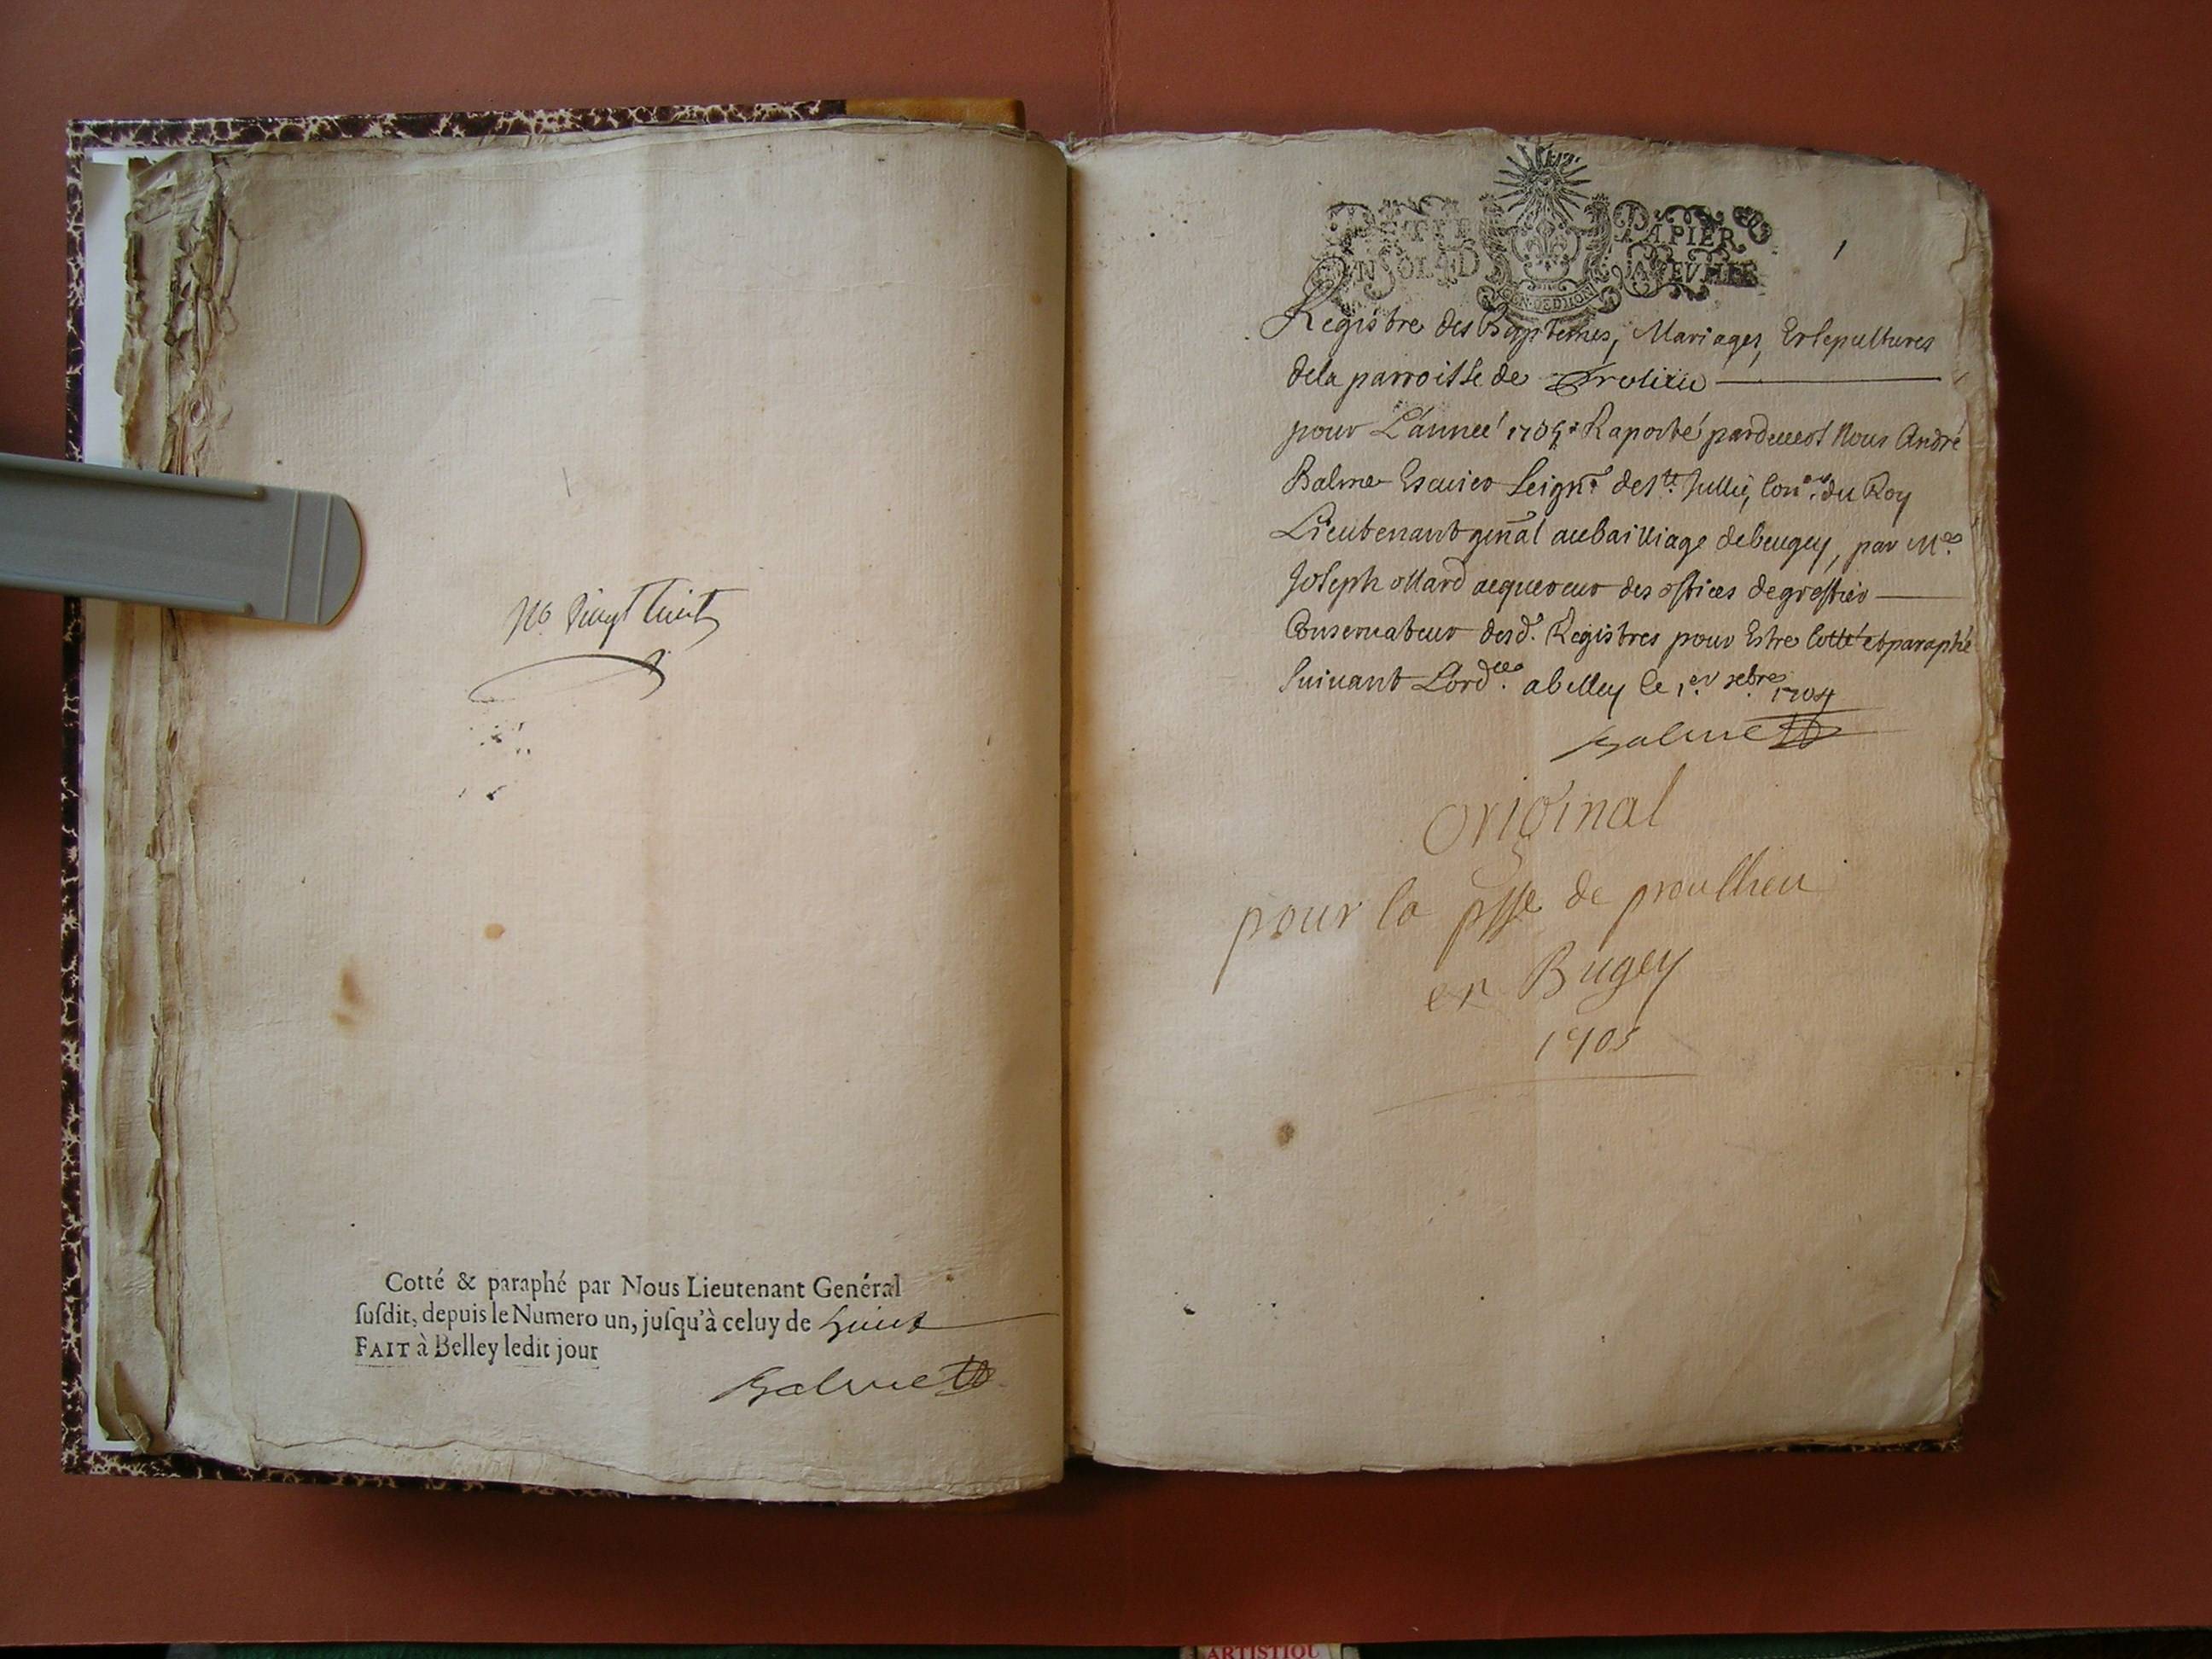 No Vingt huit
Cotté & paraphé par Nous Lieutenant Genéral
suſdit, depuis le Numero un, juſqu'à celuy de huict
FAIT à Belley ledit jour
Balme
PAPIER
1
Registre des Baptemes, Mariages, Et Sepultures
de la parroisse de Prolieu
pour L'année 1705. Raporté pardevant Nous André
Balme Escuier Seignr. de Ste. Jullie, Coner. du Roy
Lieutenant gñal au bailliage de beugey, par Me.
Joseph ollard acquereur des offices de greffier
Conservateur desd. Registres pour Estre Cotté et paraphé
suivant Lordce. a belley le 1er xbre 1704
Balme
original
pour la psse de proullieu
en Bugey
1705
ARTISTIQU